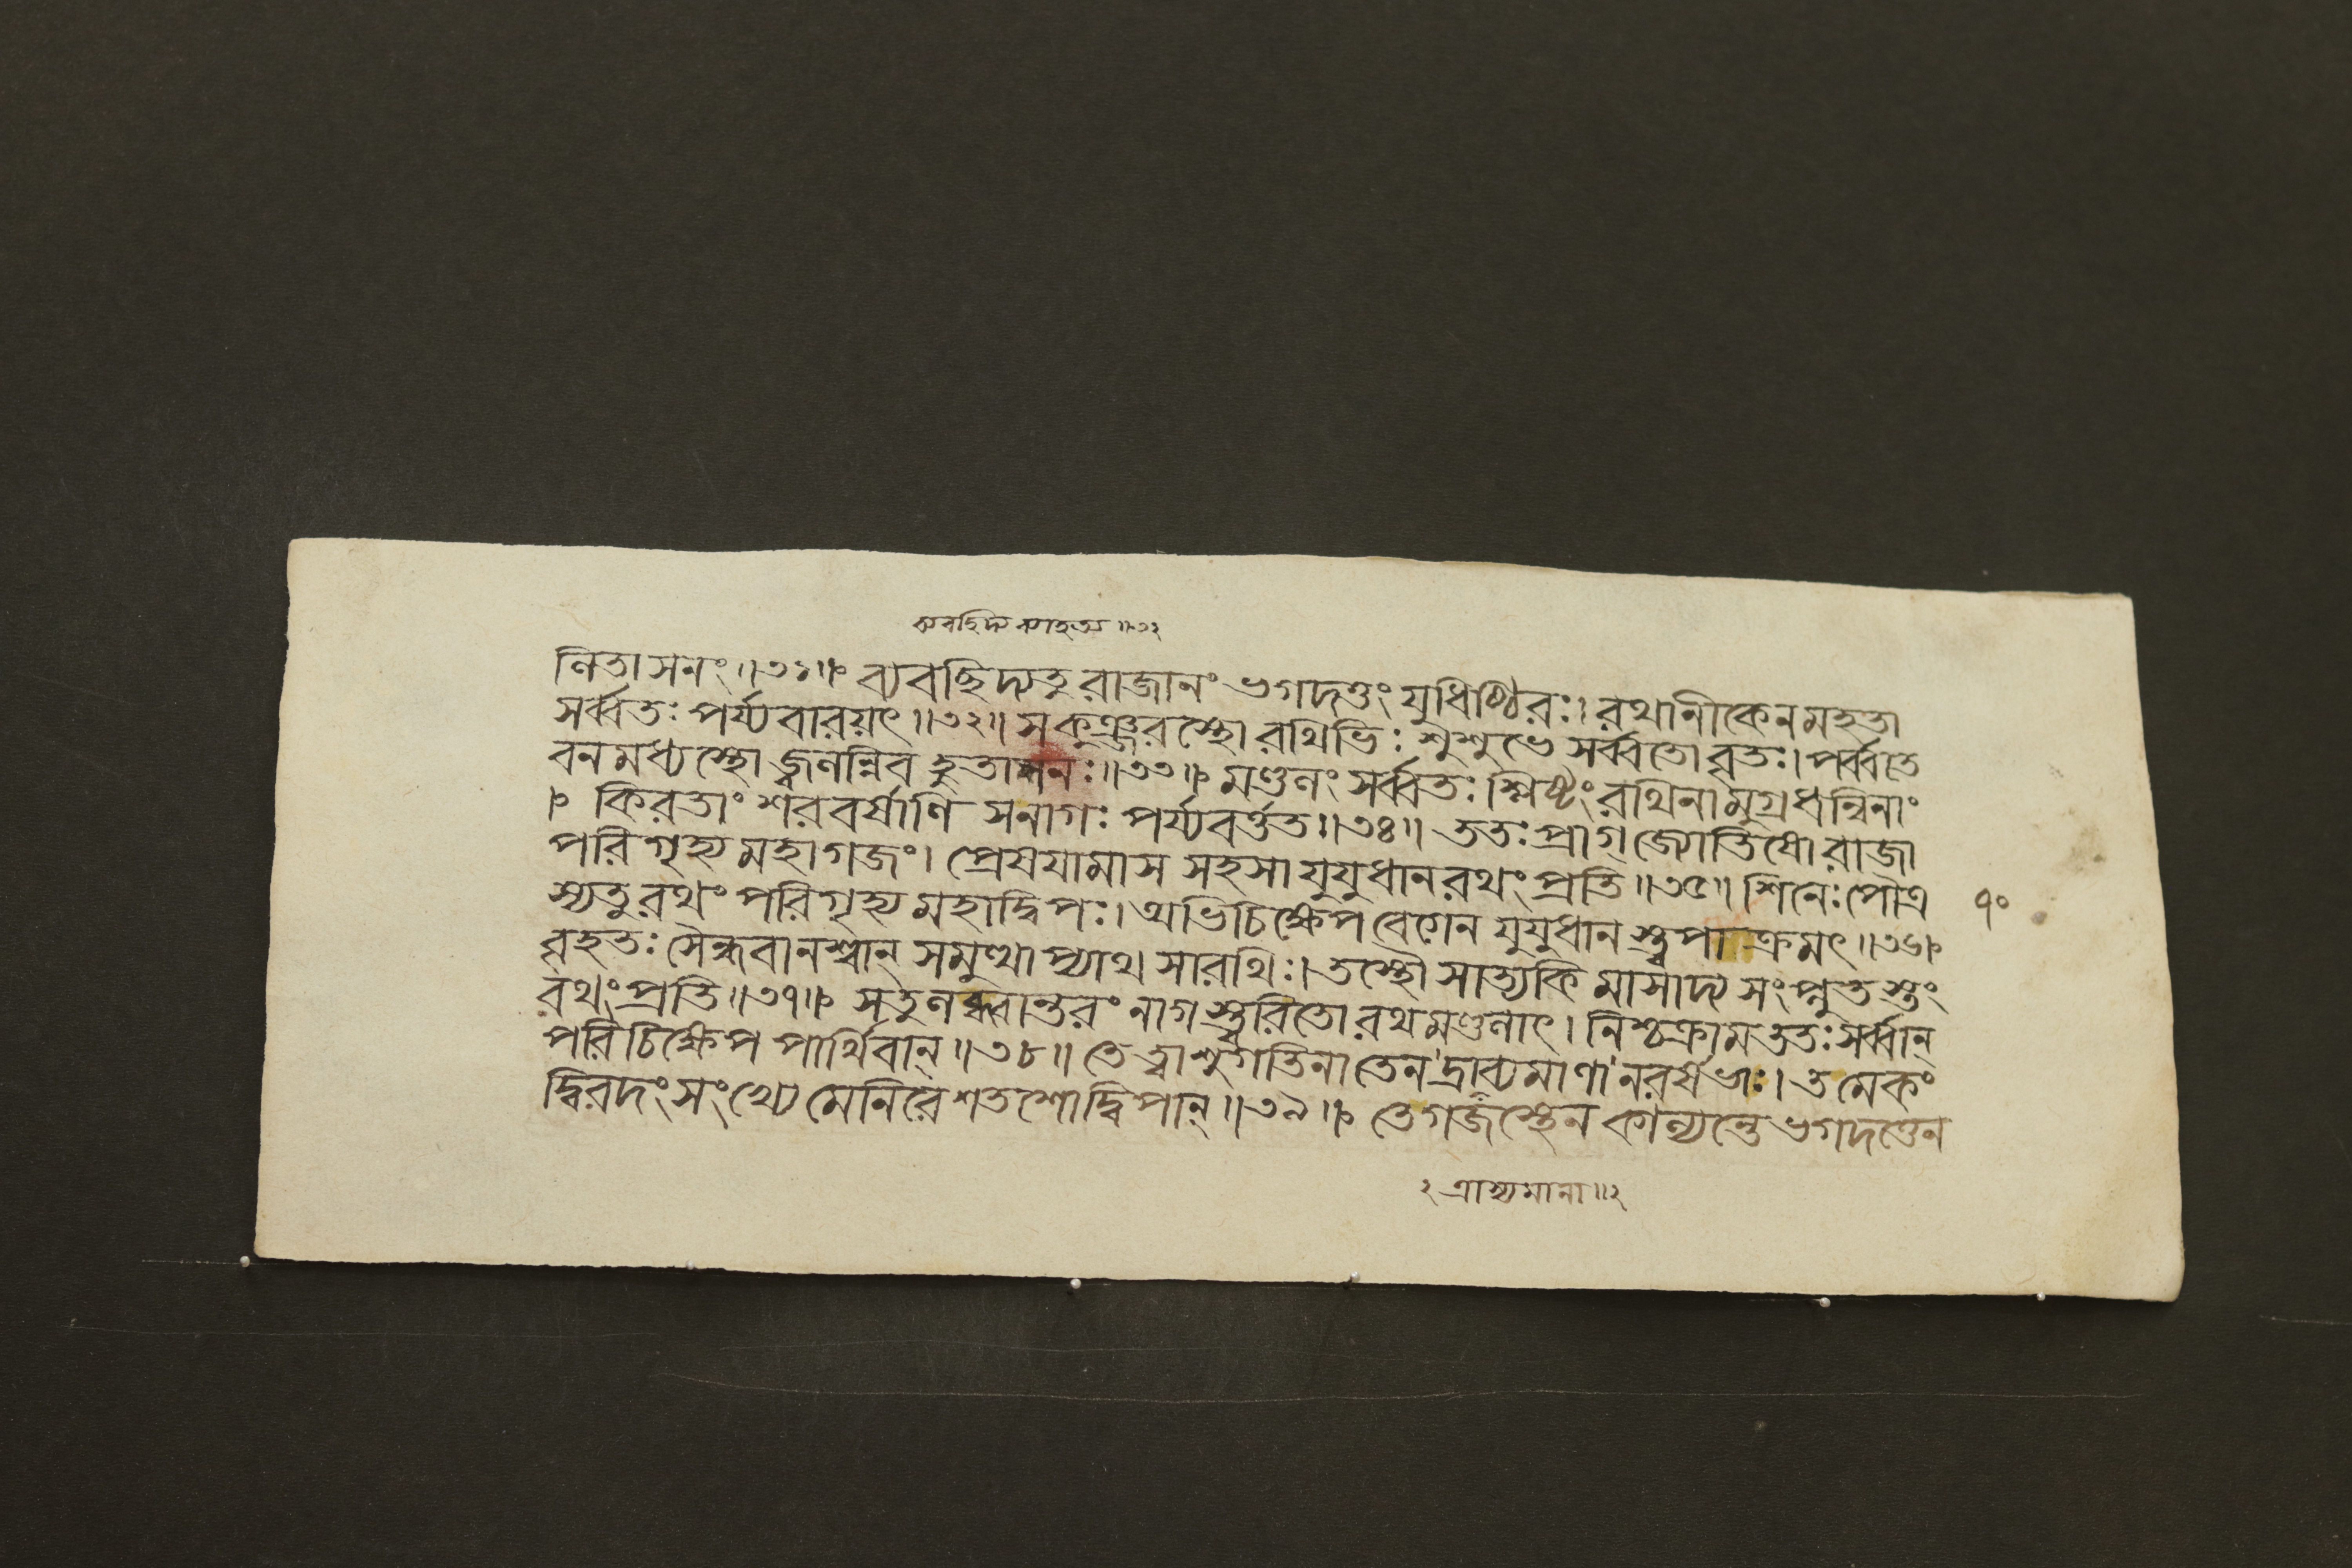 ব্যবছিদ্য ব্যাহত্য ॥ ৩২
লিতাসনং ॥৩১॥ ব্যবছিদ্যতু রাজানং ভগদত্তং যুধিষ্ঠিরঃ। রথানীকেন মহতা
সর্ব্বতঃ পর্য্যবারয়ৎ ॥৩২॥ সকুঞ্জরস্থো রথিভিঃ শুশুভে সর্ব্বতো বৃতঃ। পর্ব্বতে
বনমধ্যস্থো জ্বলন্নিব হুতাশনঃ ॥৩৩॥ মণ্ডলং সর্ব্বতঃ শ্লিষ্টং রথিনামুগ্রধন্বিনাং
। কিরতাং শরবর্ষাণি সনাগঃ পর্য্যবর্ত্তত ॥৩৪॥ ততঃ প্রাগ্জ্যোতিষো রাজা
পরিগৃহ্য মহাগজং। প্রেষযামাস সহসা যুযুধানরথং প্রতি ॥৩৫॥ শিনেঃ পৌত্র
স্যতু রথং পরিগৃহ্য মহাদ্বিপঃ। অভিচিক্ষেপ বেগেন যুযুধানস্ত্বপাক্রমৎ ॥৩৬॥
৭০
বৃহতঃ সৈন্ধবানশ্বান্ সমুত্থাপ্যাথ সারথিঃ। তস্থৌ সাত্যকিমাসাদ্য সংপ্লুতস্তং
রথং প্রতি ॥৩৭॥ সতু লব্ধ্বান্তরং নাগস্ত্বরিতো রথমণ্ডলাৎ। নিশ্চক্রাম ততঃ সর্ব্বান্
পরিচিক্ষেপ পার্থিবান্ ॥৩৮॥ তে ত্বাশুগতিনা তেন দ্রাব্যমাণা নরর্ষভাঃ। তমেকং
দ্বিরদং সংখ্যে মেনিরে শতশো দ্বিপান্ ॥৩৯॥ তে গজস্থেন কাল্যন্তে ভগদত্তেন
২ ত্রাস্যমানা ॥২